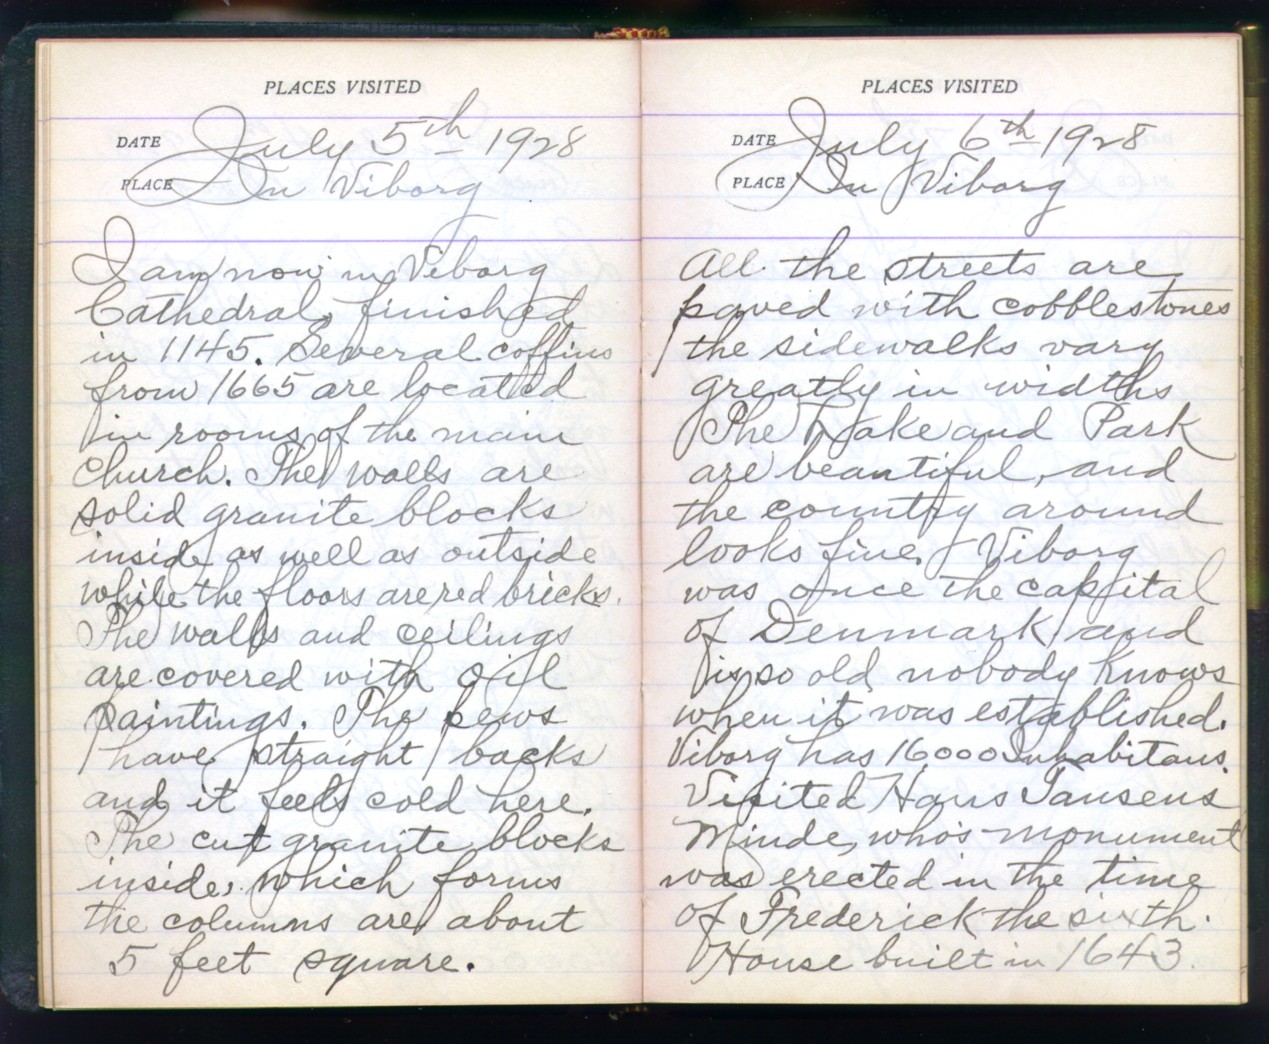 PLACES VISITED
DATE July 5th 1928
PLACE In Viborg
I am now in Viborg
Cathedral, finished
in 1145. Several coffins
from 1665 are located
in rooms of the main
church. The walls are
solid granite blocks
inside as well as outside
while the floors are red bricks.
The walls and ceilings
are covered with oil
paintings. The pews
have straight backs
and it feels cold here.
The cut granite blocks
inside, which forms
the columns are about
5 feet square.
PLACES VISITED
DATE July 6th 1928
PLACE In Viborg
All the streets are
paved with cobblestones
the sidewalks vary
greatly in widths
The Lake and Park
are beautiful, and
the country around
looks fine. Viborg
was once the capital
of Denmark and
is so old nobody knows
when it was established.
Viborg has 16000 Inhabitans.
Visited Hans Tausens
Minde, who's monument
was erected in the time
of Frederick the sixth.
House built in 1643.